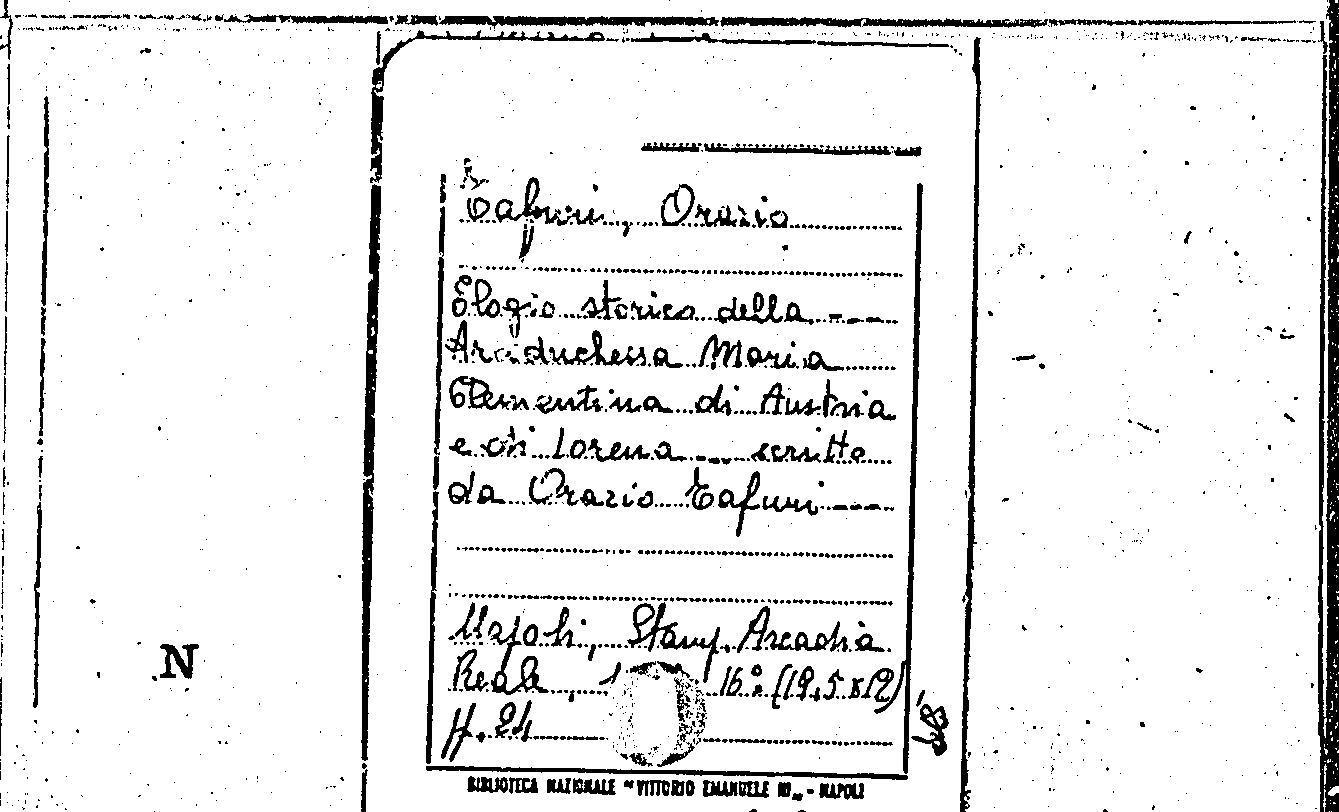 Tafuri, Orazio
Elogio storico della ---
Arciduchessa Maria
Clementina di Austria
e di Lorena --- scritto
da Orazio Tafuri ---
Napoli, Stamp. Arcadia
Reale, 16°. (19,5 x 12)
pp. 24
N
BIBLIOTECA NAZIONALE "VITTORIO EMANUELE III„ - NAPOLI